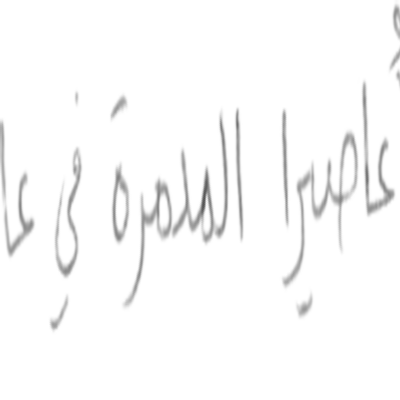 أعاصيرا المدمرة في عا